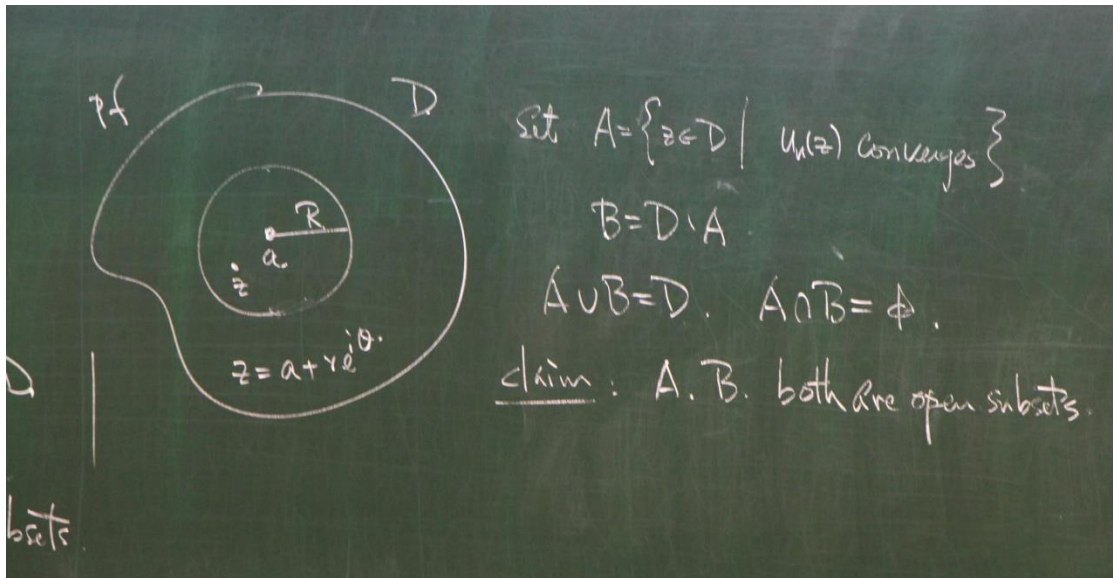 pf
D
R
a
z
z = a + re^{iθ}.
D
bsets.
Set A = {z ∈ D | u_n(z) converges}
B = D \ A
A ∪ B = D. A ∩ B = ϕ.
claim : A. B. both are open subsets.